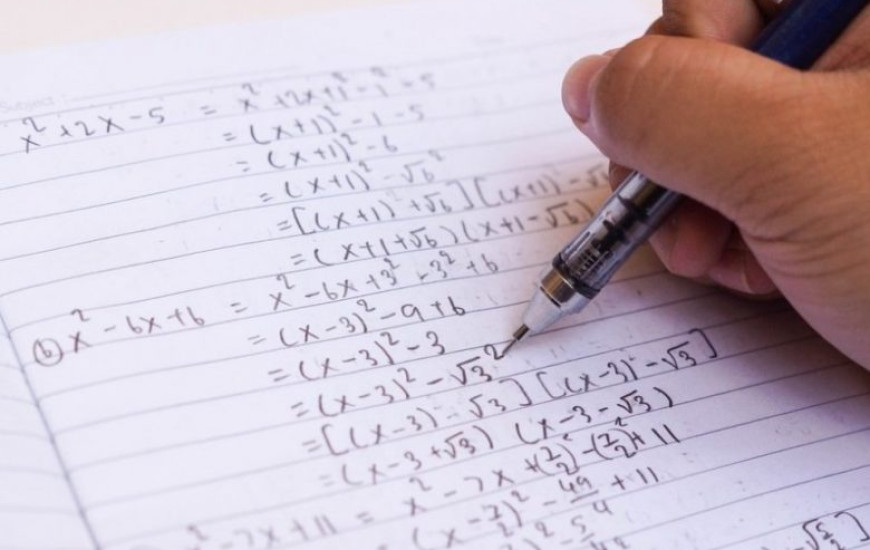 Subject
x² + 2x - 5 = x² + 2x + 1² - 1² - 5
= (x+1)² - 1 - 5
= (x+1)² - 6
= (x+1)² - √6²
= [(x+1) + √6] [(x+1) - √6
= (x+1+√6) (x+1-√6)
(b) x² - 6x + 6 = x² - 6x + 3² - 3² + 6
= (x-3)² - 9 + 6
= (x-3)² - 3
= (x-3)² - √3²
= [(x-3) - √3] [(x-3) - √3]
= (x-3+√3) (x-3-√3)
x² - 7x + 11 = x² - 7x + (7/2)² - (7/2)² + 11
(x - 7/2)² - 49/4 + 11